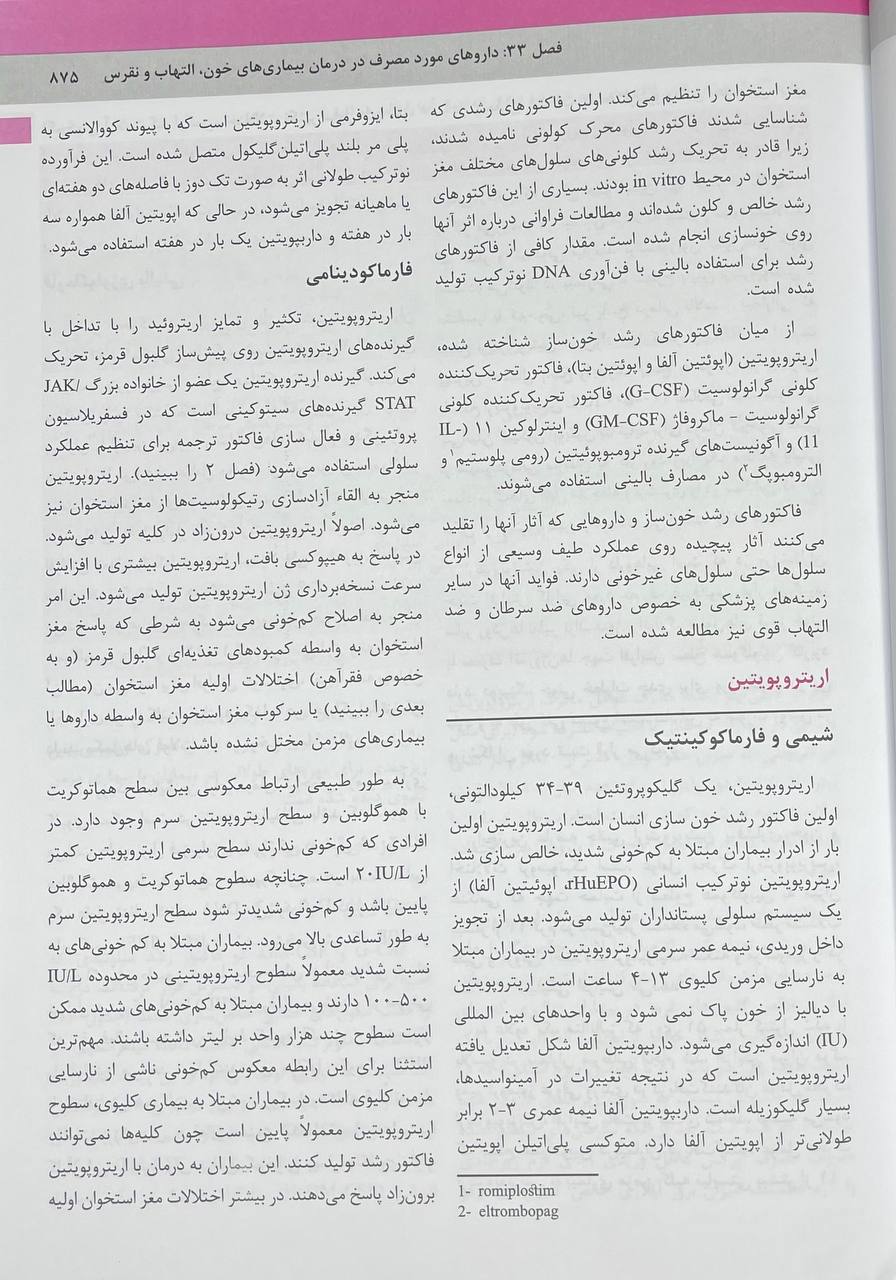 فصل ۳۳: داروهای مورد مصرف در درمان بیماری‌های خون، التهاب و نقرس ۸۷۵
مغز استخوان را تنظیم می‌کند. اولین فاکتورهای رشدی که
شناسایی شدند فاکتورهای محرک کولونی نامیده شدند،
زیرا قادر به تحریک رشد کلونی‌های سلول‌های مختلف مغز
استخوان در محیط in vitro بودند. بسیاری از این فاکتورهای
رشد خالص و کلون شده‌اند و مطالعات فراوانی درباره اثر آنها
روی خونسازی انجام شده است. مقدار کافی از فاکتورهای
رشد برای استفاده بالینی با فن‌آوری DNA نوترکیب تولید
شده است.
از میان فاکتورهای رشد خون‌ساز شناخته شده،
اریتروپویتین (اپوئتین آلفا و اپوئتین بتا)، فاکتور تحریک‌کننده
کلونی گرانولوسیت (G-CSF)، فاکتور تحریک‌کننده کلونی
گرانولوسیت – ماکروفاژ (GM-CSF) و اینترلوکین ۱۱ (IL-
11) و آگونیست‌های گیرنده ترومبوپوئیتین (رومی پلوستیم۱ و
الترومبوپگ۲) در مصارف بالینی استفاده می‌شوند.
فاکتورهای رشد خون‌ساز و داروهایی که آثار آنها را تقلید
می‌کنند آثار پیچیده روی عملکرد طیف وسیعی از انواع
سلول‌ها حتی سلول‌های غیرخونی دارند. فواید آنها در سایر
زمینه‌های پزشکی به خصوص داروهای ضد سرطان و ضد
التهاب قوی نیز مطالعه شده است.
اریتروپویتین
شیمی و فارماکوکینتیک
اریتروپویتین، یک گلیکوپروتئین ۳۹-۳۴ کیلودالتونی،
اولین فاکتور رشد خون سازی انسان است. اریتروپویتین اولین
بار از ادرار بیماران مبتلا به کم‌خونی شدید، خالص سازی شد.
اریتروپویتین نوترکیب انسانی (rHuEPO، اپوئیتین آلفا) از
یک سیستم سلولی پستانداران تولید می‌شود. بعد از تجویز
داخل وریدی، نیمه عمر سرمی اریتروپویتین در بیماران مبتلا
به نارسایی مزمن کلیوی ۱۳-۴ ساعت است. اریتروپویتین
با دیالیز از خون پاک نمی شود و با واحدهای بین المللی
(IU) اندازه‌گیری می‌شود. داربپویتین آلفا شکل تعدیل یافته
اریتروپویتین است که در نتیجه تغییرات در آمینواسیدها،
بسیار گلیکوزیله است. داربپویتین آلفا نیمه عمری ۳-۲ برابر
طولانی‌تر از اپویتین آلفا دارد. متوکسی پلی‌اتیلن اپویتین
1- romiplostim
2- eltrombopag
بتا، ایزوفرمی از اریتروپویتین است که با پیوند کووالانسی به
پلی مر بلند پلی‌اتیلن‌گلیکول متصل شده است. این فرآورده
نوترکیب طولانی اثر به صورت تک دوز با فاصله‌های دو هفته‌ای
یا ماهیانه تجویز می‌شود، در حالی که اپویتین آلفا همواره سه
بار در هفته و داربپویتین یک بار در هفته استفاده می‌شود.
فارماکودینامی
اریتروپویتین، تکثیر و تمایز اریتروئید را با تداخل با
گیرنده‌های اریتروپویتین روی پیش‌ساز گلبول قرمز، تحریک
می‌کند. گیرنده اریتروپویتین یک عضو از خانواده بزرگ JAK/
STAT گیرنده‌های سیتوکینی است که در فسفریلاسیون
پروتئینی و فعال سازی فاکتور ترجمه برای تنظیم عملکرد
سلولی استفاده می‌شود (فصل ۲ را ببینید). اریتروپویتین
منجر به القاء آزادسازی رتیکولوسیت‌ها از مغز استخوان نیز
می‌شود. اصولاً اریتروپویتین درون‌زاد در کلیه تولید می‌شود.
در پاسخ به هیپوکسی بافت، اریتروپویتین بیشتری با افزایش
سرعت نسخه‌برداری ژن اریتروپویتین تولید می‌شود. این امر
منجر به اصلاح کم‌خونی می‌شود به شرطی که پاسخ مغز
استخوان به واسطه کمبودهای تغذیه‌ای گلبول قرمز (و به
خصوص فقرآهن) اختلالات اولیه مغز استخوان (مطالب
بعدی را ببینید) یا سرکوب مغز استخوان به واسطه داروها یا
بیماری‌های مزمن مختل نشده باشد.
به طور طبیعی ارتباط معکوسی بین سطح هماتوکریت
با هموگلوبین و سطح اریتروپویتین سرم وجود دارد. در
افرادی که کم‌خونی ندارند سطح سرمی اریتروپویتین کمتر
از ۲۰IU/L است. چنانچه سطوح هماتوکریت و هموگلوبین
پایین باشد و کم‌خونی شدیدتر شود سطح اریتروپویتین سرم
به طور تساعدی بالا می‌رود. بیماران مبتلا به کم خونی‌های به
نسبت شدید معمولاً سطوح اریتروپویتینی در محدوده IU/L
۵۰۰-۱۰۰ دارند و بیماران مبتلا به کم‌خونی‌های شدید ممکن
است سطوح چند هزار واحد بر لیتر داشته باشند. مهم‌ترین
استثنا برای این رابطه معکوس کم‌خونی ناشی از نارسایی
مزمن کلیوی است. در بیماران مبتلا به بیماری کلیوی، سطوح
اریتروپویتین معمولاً پایین است چون کلیه‌ها نمی‌توانند
فاکتور رشد تولید کنند. این بیماران به درمان با اریتروپویتین
برون‌زاد پاسخ می‌دهند. در بیشتر اختلالات مغز استخوان اولیه